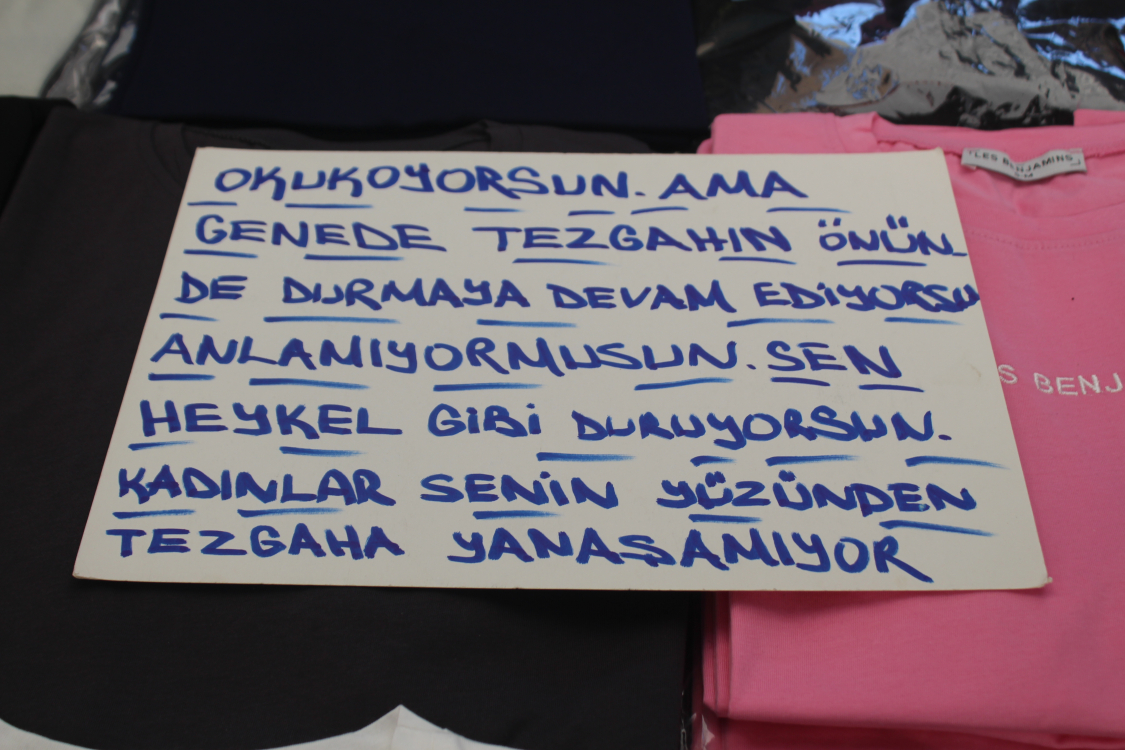 OKUKOYORSUN. AMA
GENEDE TEZGAHIN ÖNÜN_
DE DURMAYA DEVAM EDİYORSU
ANLAMIYORMUSUN. SEN
HEYKEL GİBİ DURUYORSUN.
KADINLAR SENİN YÜZÜNDEN
TEZGAHA YANAŞAMIYOR
LES BENJAMINS
S BENJ